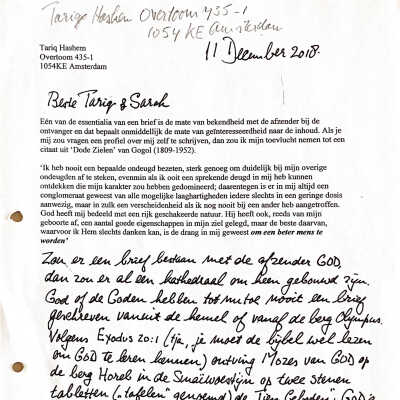 Tariq Hashem Overtoom 435-1
1054 KE Amsterdam
11 December 2018.
Tariq Hashem
Overtoom 435-1
1054KE Amsterdam
Beste Tariq & Sarah
Eén van de essentialia van een brief is de mate van bekendheid met de afzender bij de
ontvanger en dat bepaalt onmiddelijk de mate van geïnteresseerdheid naar de inhoud. Als je
mij zou vragen een profiel over mij zelf te schrijven, dan zou ik mijn toevlucht nemen tot een
citaat uit 'Dode Zielen' van Gogol (1809-1952).
'Ik heb nooit een bepaalde ondeugd bezeten, sterk genoeg om duidelijk bij mijn overige
ondeugden af te steken, evenmin als ik ooit een sprekende deugd in mij heb kunnen
ontdekken die mijn karakter zou hebben gedomineerd; daarentegen is er in mij altijd een
conglomeraat geweest van alle mogelijke laaghartigheden iedere slechts in een geringe dosis
aanwezig, maar in zulk een verscheidenheid als ik nog nooit bij een ander heb aangetroffen.
God heeft mij bedeeld met een rijk geschakeerde natuur. Hij heeft ook, reeds van mijn
geboorte af, een aantal goede eigenschappen in mijn ziel gelegd, maar de beste daarvan,
waarvoor ik Hem slechts danken kan, is de drang in mij geweest om een beter mens te
worden'
Zou er een brief bestaan met de afzender GOD,
dan zou er al een kathedraal om heen gebouwd zijn.
God of de Goden hebben tot nu toe nooit een brief
geschreven vanuit de hemel of vanaf de berg Olympus.
Volgens Exodus 20:1 (tja, je moet de bijbel wel lezen
om GOD te leren kennen) ontving Mozes van GOD op
de berg Horeb in de Sinaïwoestijn op twee stenen
tabletten ("tafelen" genoemd) de Tien Geboden. GOD is